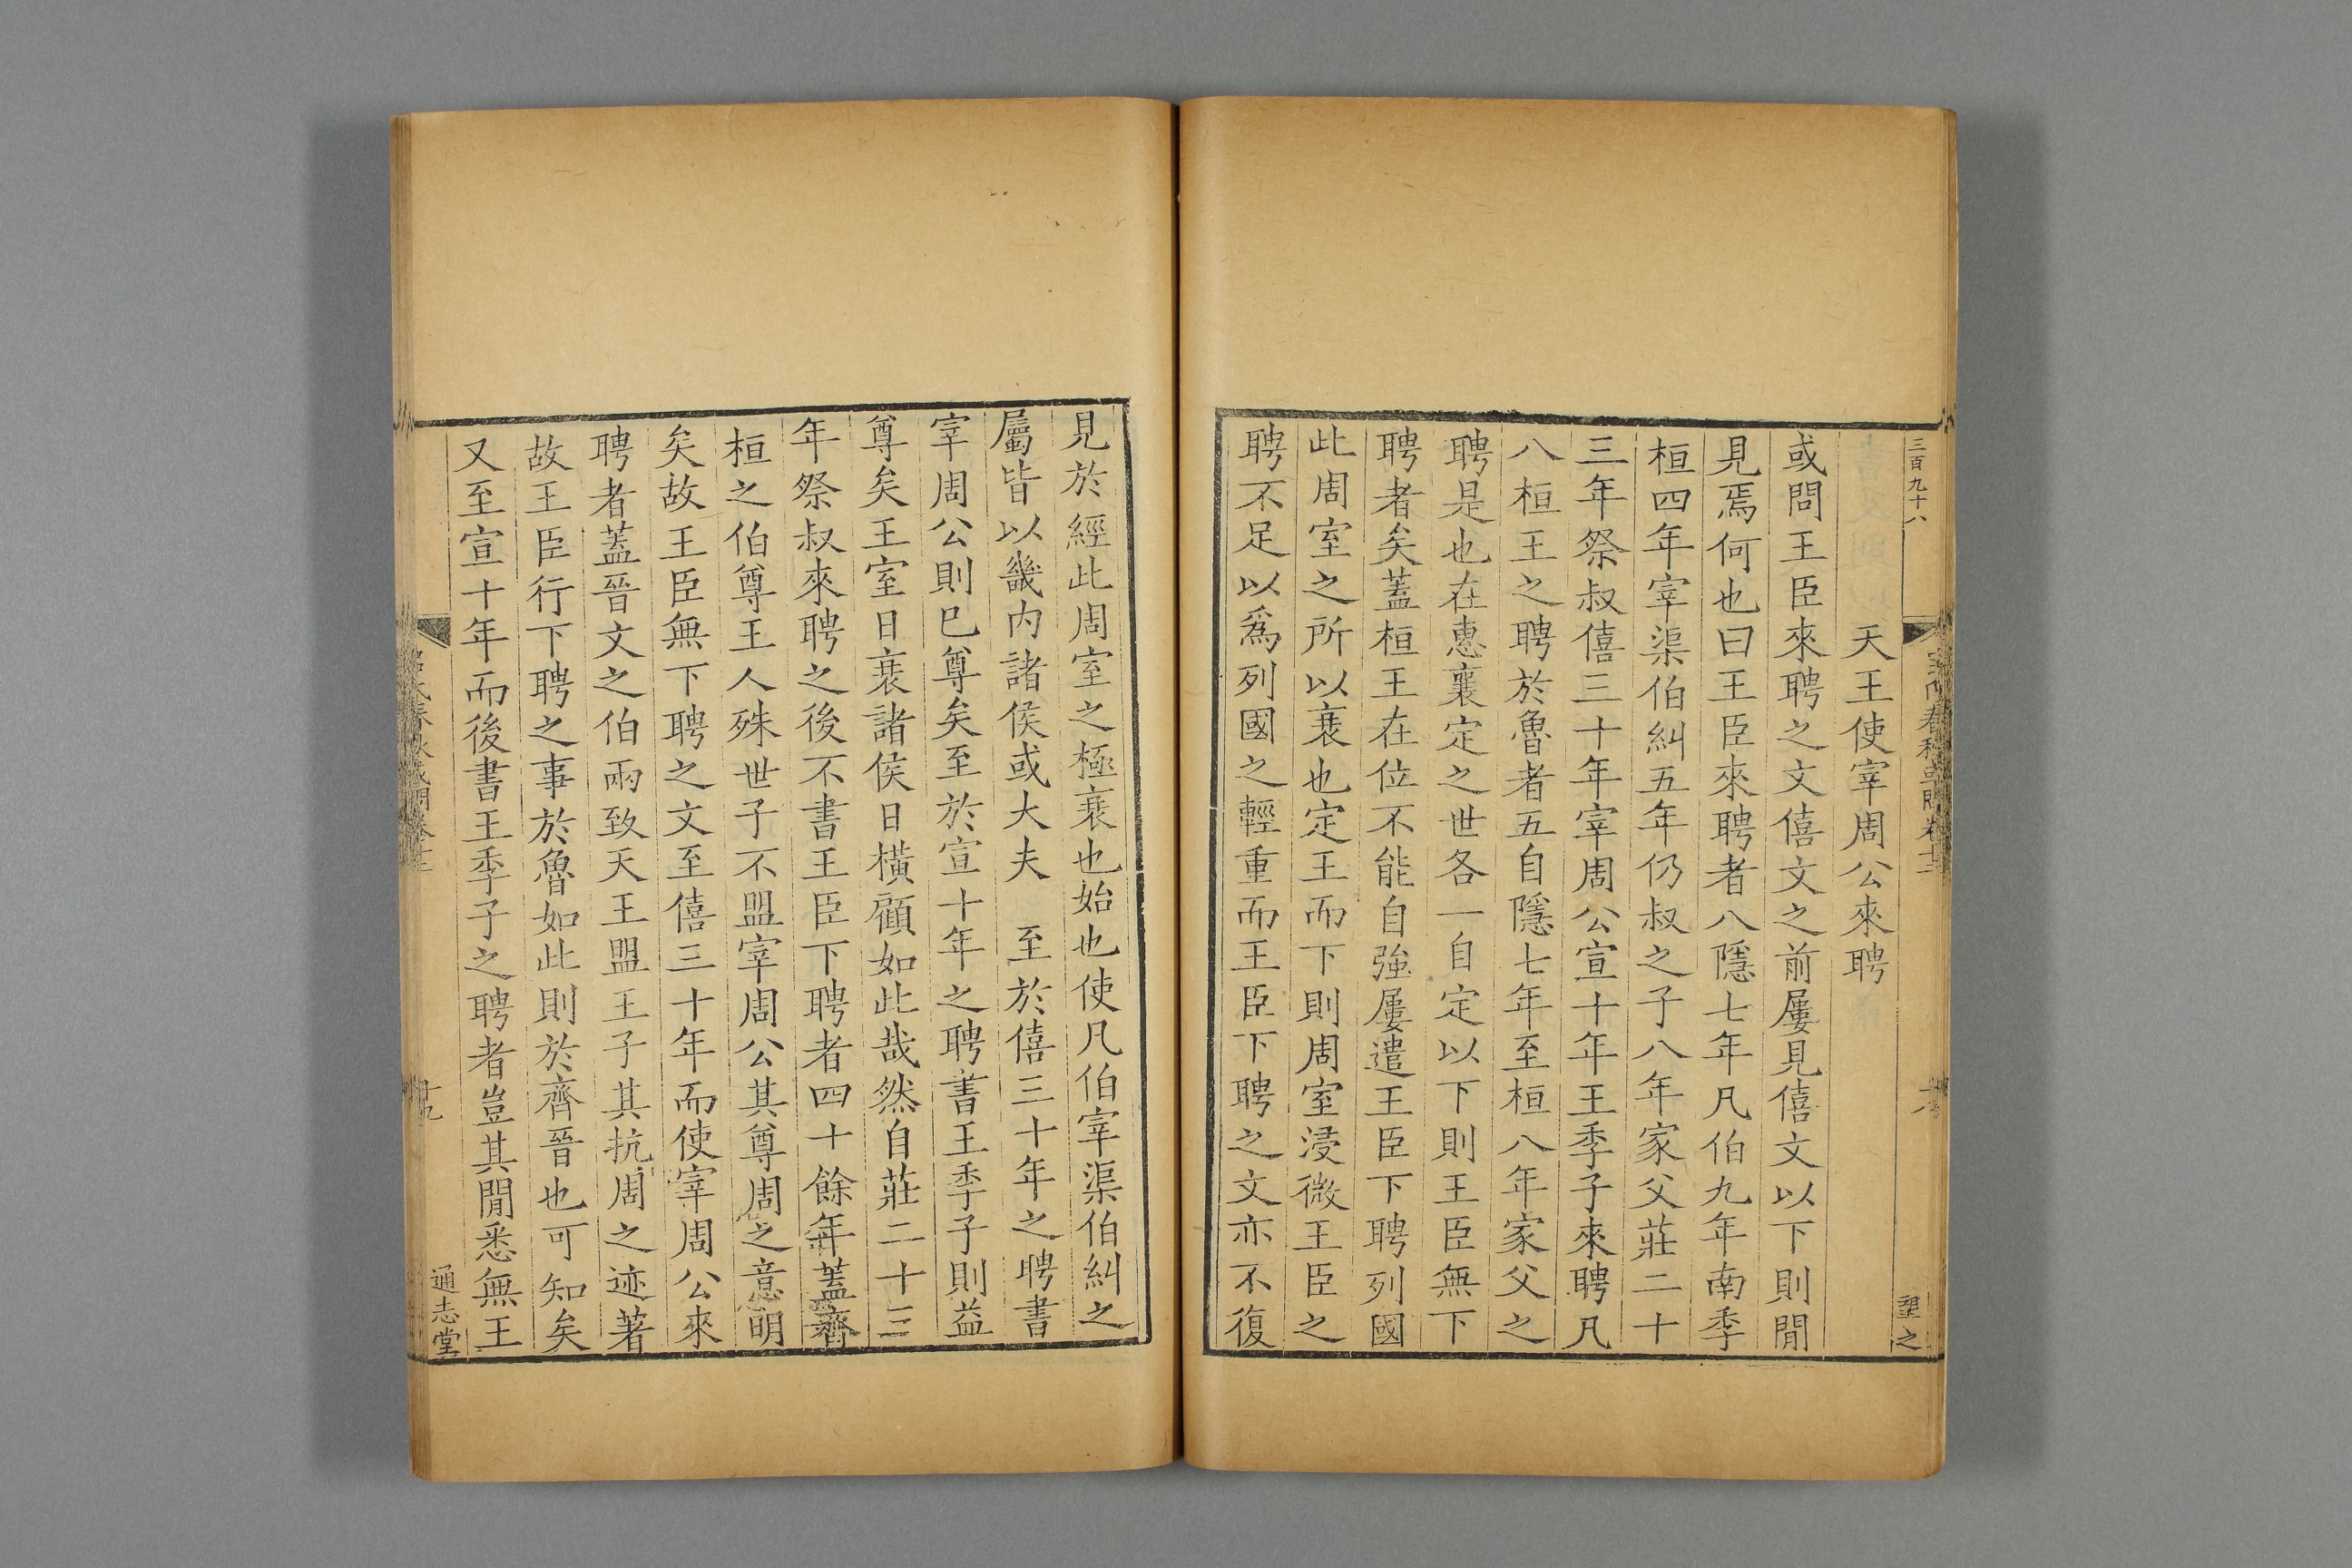 三百九十八
望之
天王使宰周公來聘
或問王臣來聘之文僖文之前屢見僖文以下則閒
見焉何也曰王臣來聘者八隱七年凡伯九年南季
桓四年宰渠伯糾五年仍叔之子八年家父莊二十
三年祭叔僖三十年宰周公宣十年王季子來聘凡
八桓王之聘於魯者五自隱七年至桓八年家父之
聘是也在惠襄定之世各一自定以下則王臣無下
聘者矣蓋桓王在位不能自強屢遣王臣下聘列國
此周室之所以衰也定王而下則周室浸微王臣之
聘不足以爲列國之輕重而王臣下聘之文亦不復
見於經此周室之極衰也始也使凡伯宰渠伯糾之
屬皆以畿内諸侯或大夫 至於僖三十年之聘書
宰周公則已尊矣至於宣十年之聘書王季子則益
尊矣王室日衰諸侯日橫顧如此哉然自莊二十三
年祭叔來聘之後不書王臣下聘者四十餘年蓋齊
桓之伯尊王人殊世子不盟宰周公其尊周之意明
矣故王臣無下聘之文至僖三十年而使宰周公來
聘者蓋晉文之伯兩致天王盟王子其抗周之迹著
故王臣行下聘之事於魯如此則於齊晉也可知矣
又至宣十年而後書王季子之聘者豈其閒悉無王
通志堂